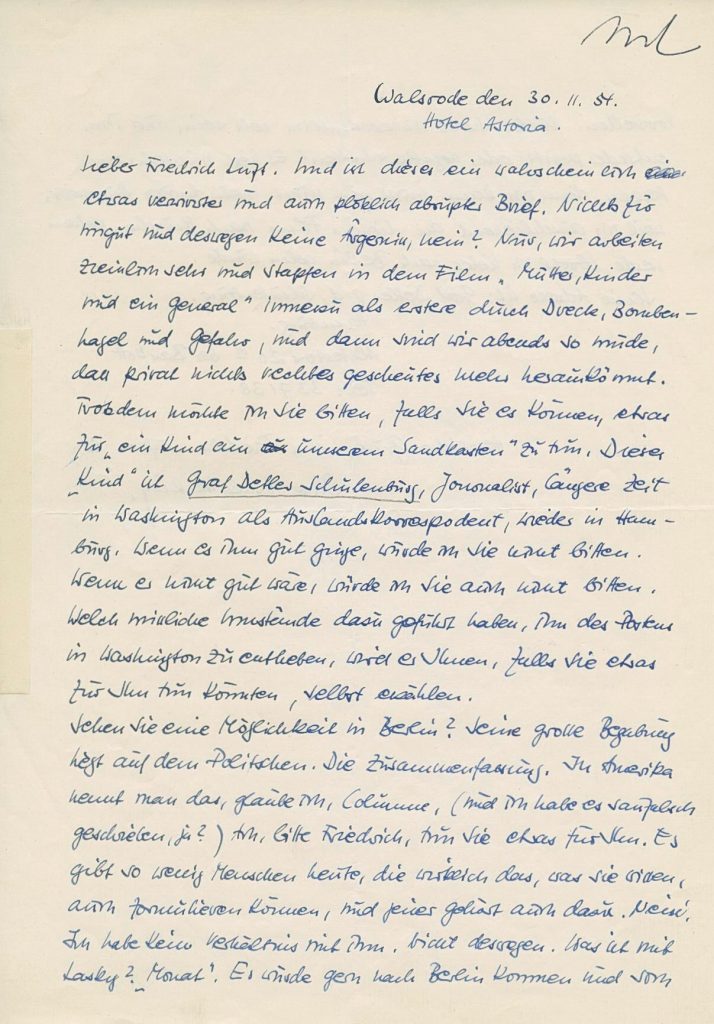 Walsrode den 30.11.54.
Hotel Astoria.
Lieber Friedrich Luft. Und ist dieser ein wahrscheinlich
etwas verwirrter und auch plötzlich abrupter Brief. Nichts für
ungut und deswegen keine Ärgernis, nein? Nur, wir arbeiten
ziemlich sehr und stapfen in dem Film „Mütter, Kinder
und ein General" immerzu als erstere durch Dreck, Bomben-
hagel und Gefahr, und dann sind wir abends so müde,
dass privat nichts rechtes gescheutes mehr herauskömmt.
Trotzdem möchte ich Sie bitten, falls Sie es können, etwas
für „ein Kind aus unserem Sandkasten" zu tun. Dieses
„Kind" ist Graf Detlev Schulenburg, Jounalist, längere Zeit
in Washington als Auslandskorrespodent, wieder in Ham-
burg. Wenn es ihm gut ginge, würde ich Sie nicht bitten.
Wenn er nicht gut wäre, würde ich Sie auch nicht bitten.
Welch missliche Umstände dazu geführt haben, ihn des Postens
in Washington zu entheben, wird er Ihnen, falls Sie etwas
für Ihn tun könnten, selbst erzählen.
Sehen Sie eine Möglichkeit in Berlin? Seine große Begabung
liegt auf dem Politschen. Die Zusammenfassung. In Amerika
nennt man das, glaube ich, Columne, (und ich habe es saufalsch
geschrieben, ja?) Ach, bitte Friedrich, tun Sie etwas für Ihn. Es
gibt so wenig Menschen heute, die wirklich das, was sie wissen,
auch formulieren können, und jener gehört auch dazu. Nein,
Ich habe kein Verhältnis mit ihm. Nicht deswegen. Was ist mit
Lasky? „Monat". Er würde gern nach Berlin kommen und vom